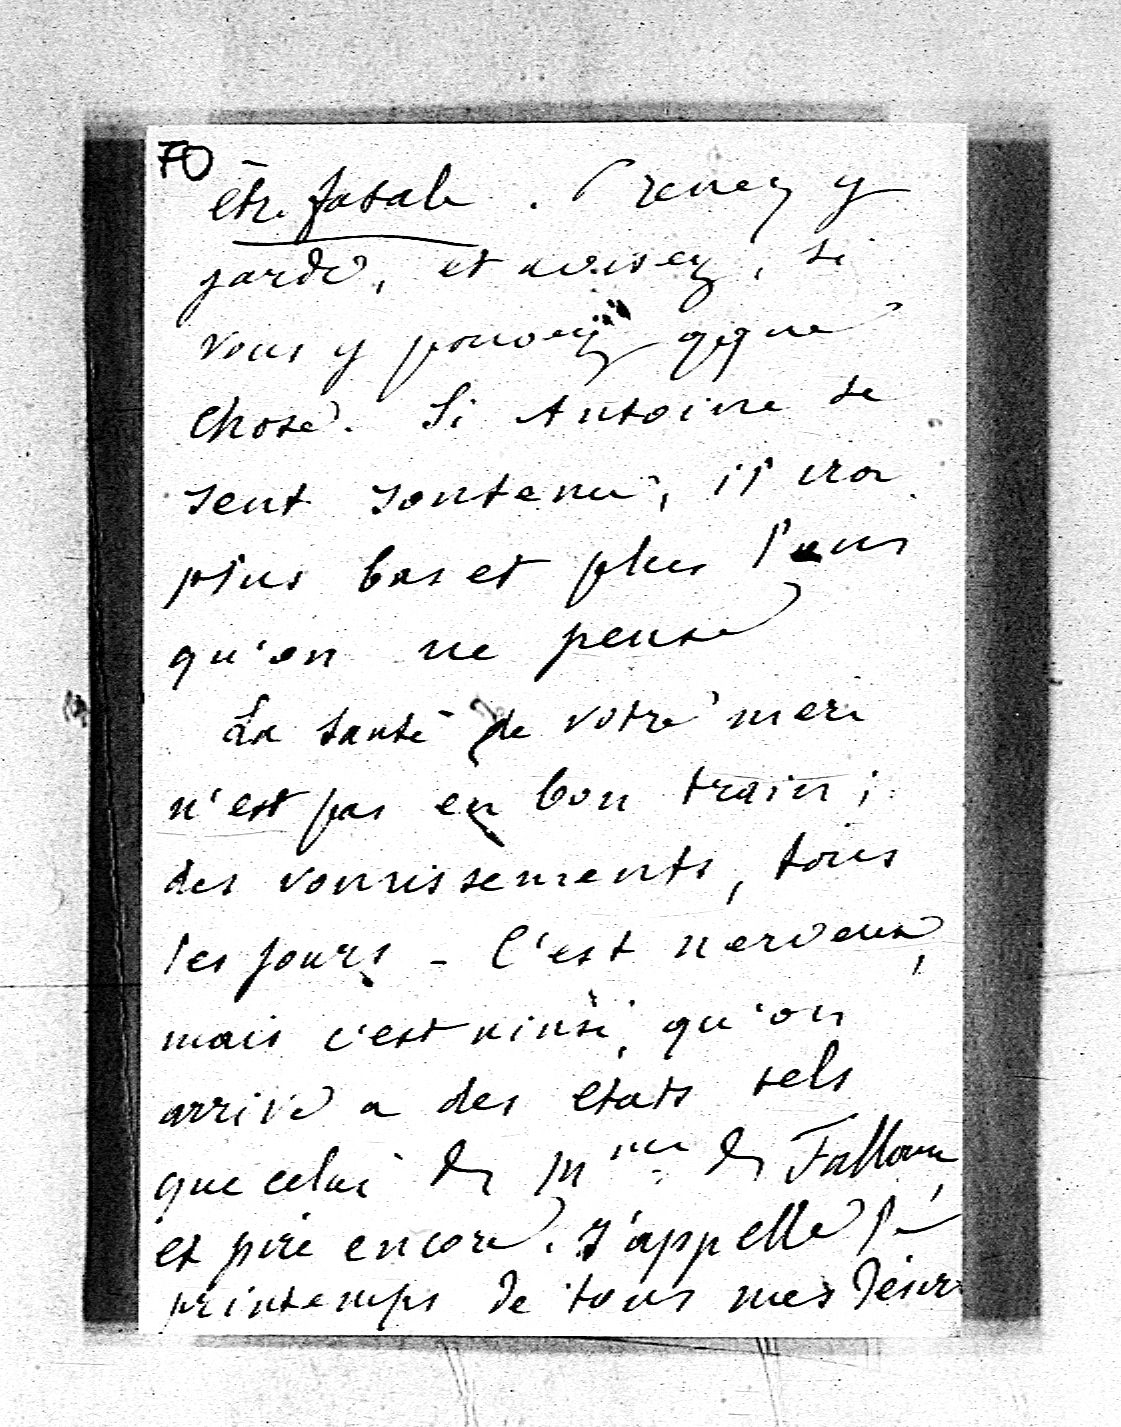 70
être fatale. Prenez y
garde, et avisez, si
vous y pouvez qqque
chose. Si Antoine se
sent soutenu, il ira
plus bas et plus loin
qu'on ne pense
La santé de votre mari
n'est pas en bon train;
des vomissements, tous
les jours - C'est nerveux,
mais c'est ainsi, qu'on
arrive a des etats tels
que celui de Mme de Falloux,
et pire encore. J'appelle le
printemps de tous mes désirs